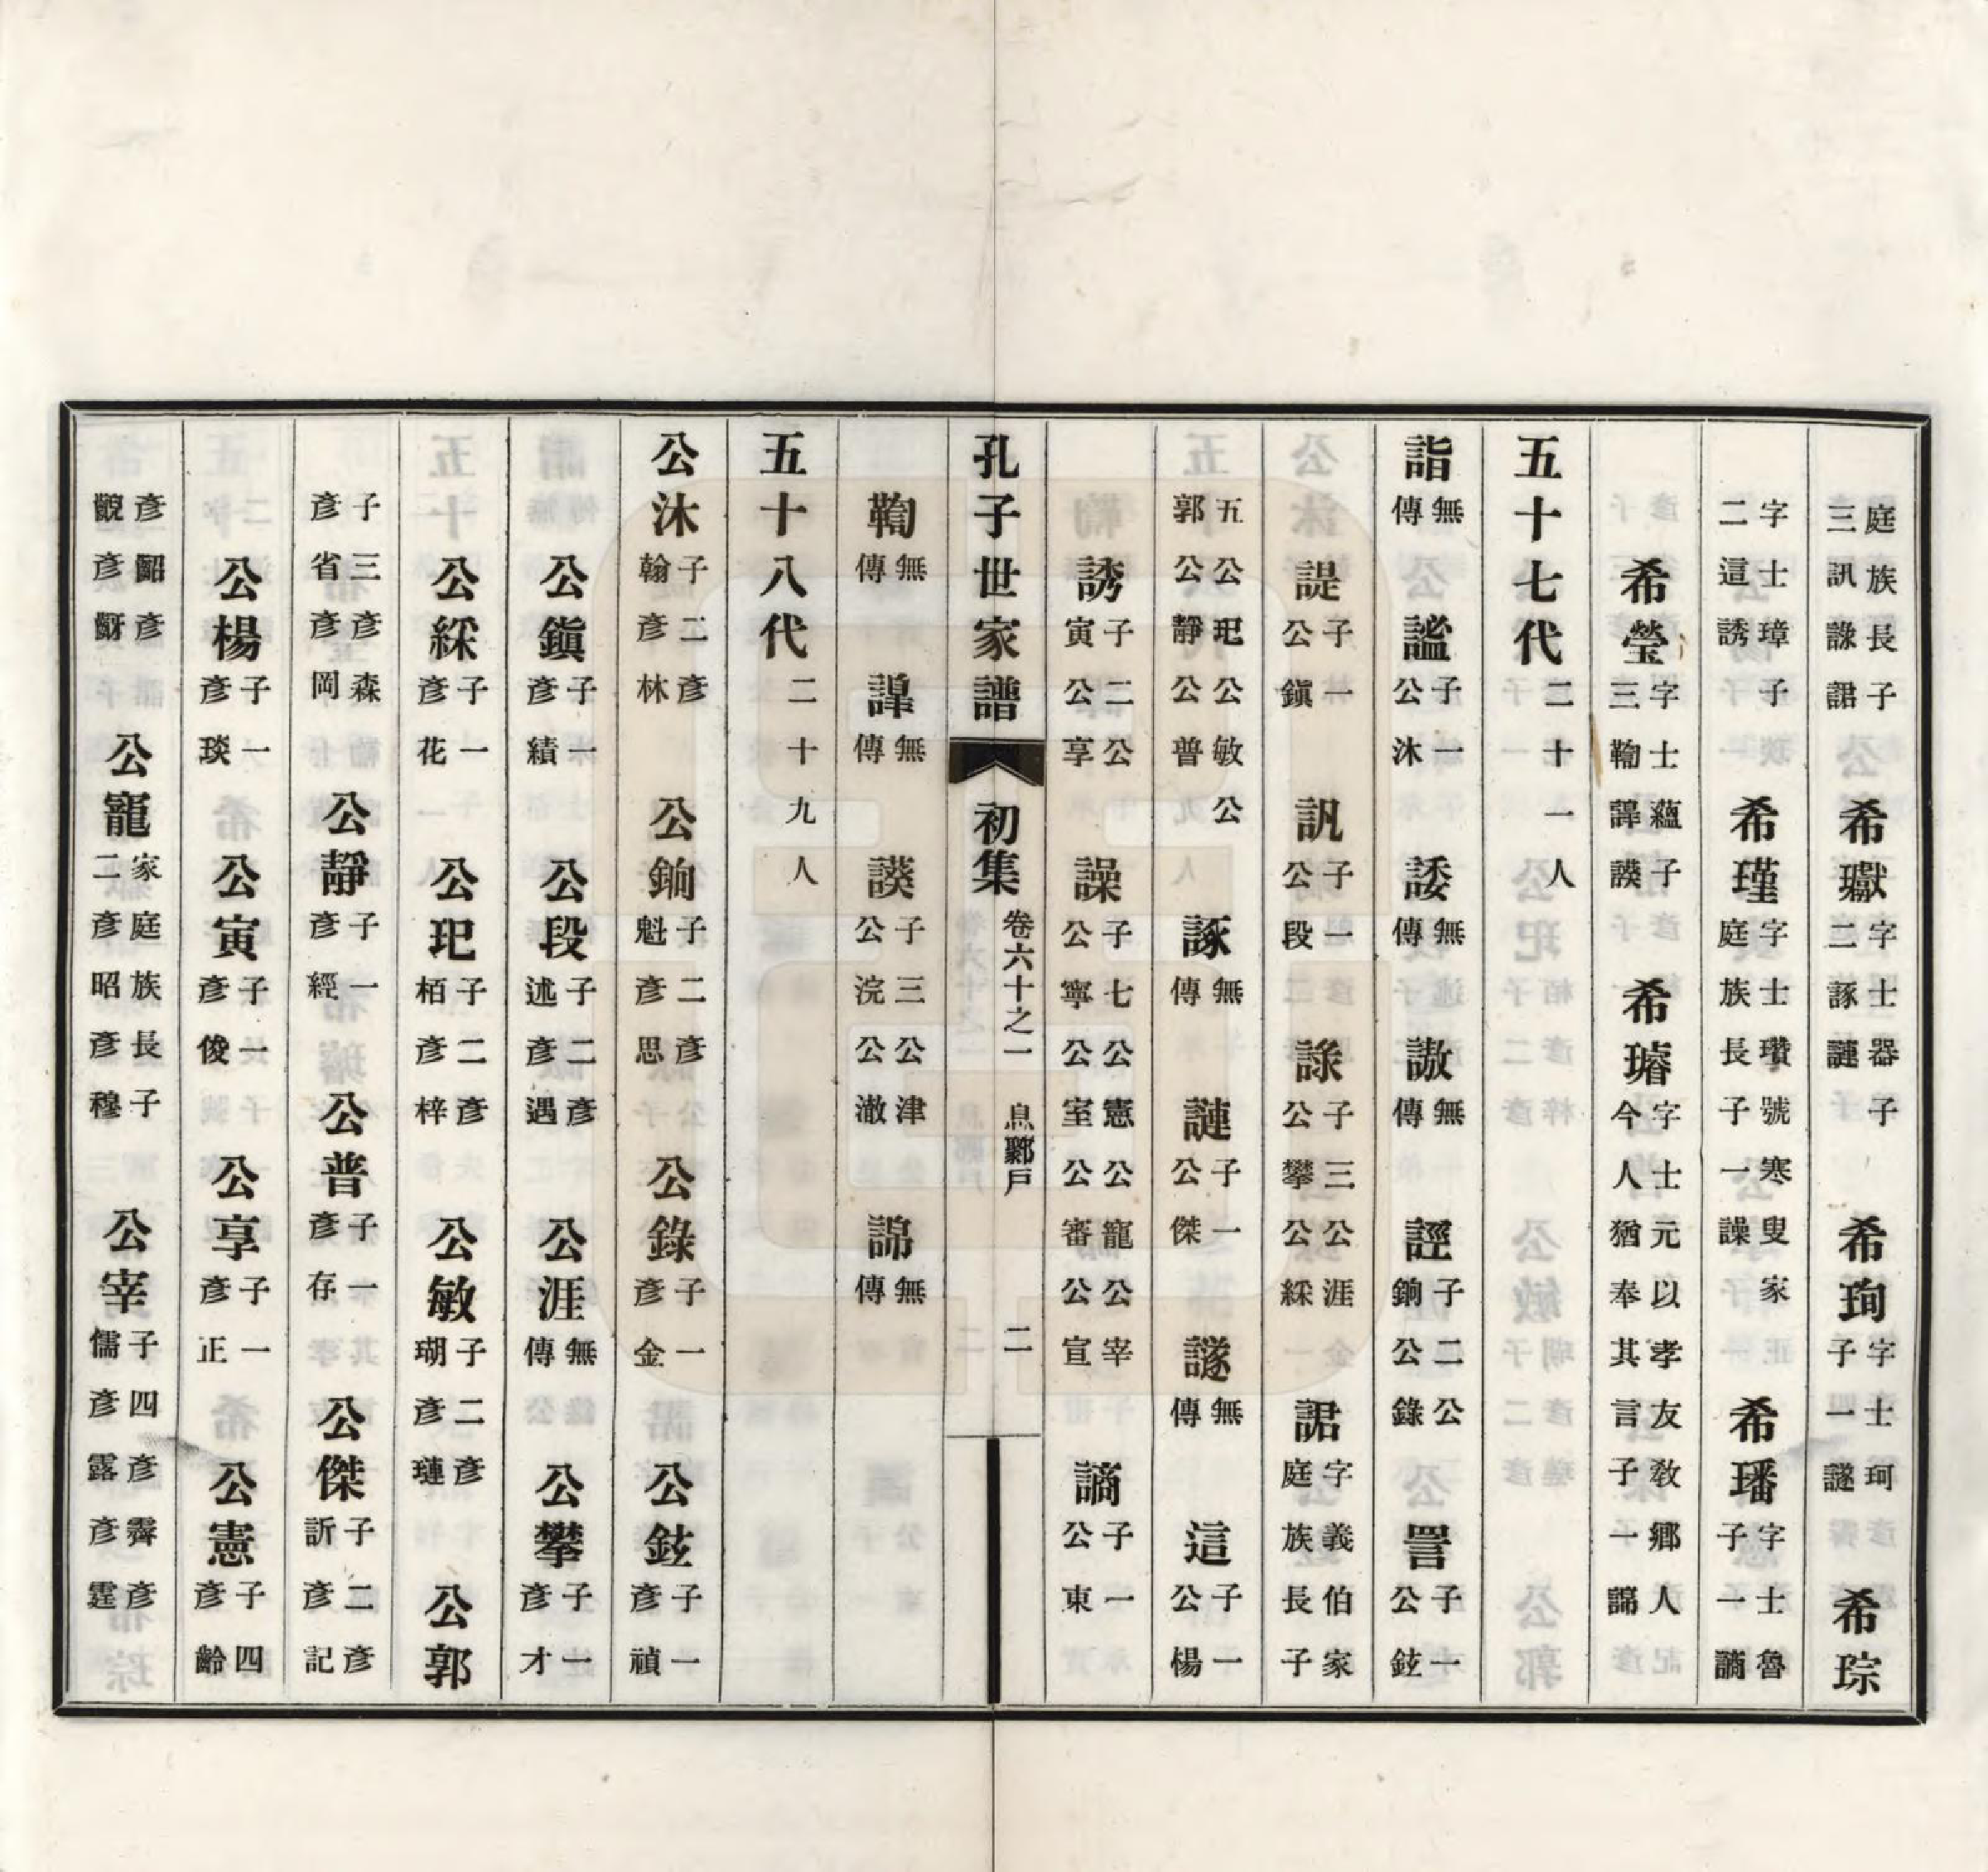 庭族長子三訊諑誻　希瓛字士器子二諑謰　希珣字士珂子一譢　希琮
字士璋子二這誘　希瑾字士瓚號寒叟家庭族長子一譟　希璠字士魯子一謫
希瑩字士蘊子三鞫諢謨　希璿字士元以孝友教鄉人今人猶奉其言子一譾
五十七代二十一人
詣無傳　謐子一公沐　諉無傳　譤無傳　誙子二公鍧公錄　詈子一公鉉
諟子一公鎭　訊子一公段　諑子三公涯公攀公綵　誻字義伯家庭族長子
五公玘公敏公郭公靜公普　諑無傳　謰子一公傑　譢無傳　這子一公楊
誘子二公寅公享　譟子七公憲公寵公宰公寧公室公審公宣　謫子一公東
孔子世家譜　初集　卷六十之一　二
鞫無傳　諢無傳　謨子三公津公浣公澈　無傳
五十八代二十九人
公沐子二彥翰彥林　公鍧子二彥魁彥思　公錄子一彥金　公鉉子一彥禎
公鎭子一彥績　公段子二彥述彥遇　公涯無傳　公攀子一彥才
公綵子一彥花　公玘子二彥栢彥梓　公敏子二彥瑚彥璉　公郭
子三彥森彥省彥岡　公靜子一彥經　公普子一彥存　公傑子二彥訢彥記
公楊子一彥琰　公寅子一彥俊　公享子一彥正　公憲子四彥齡
彥韶彥觀彥　公寵家庭族長子二彥昭彥穆　公宰子四彥儒彥霽彥露彥霆